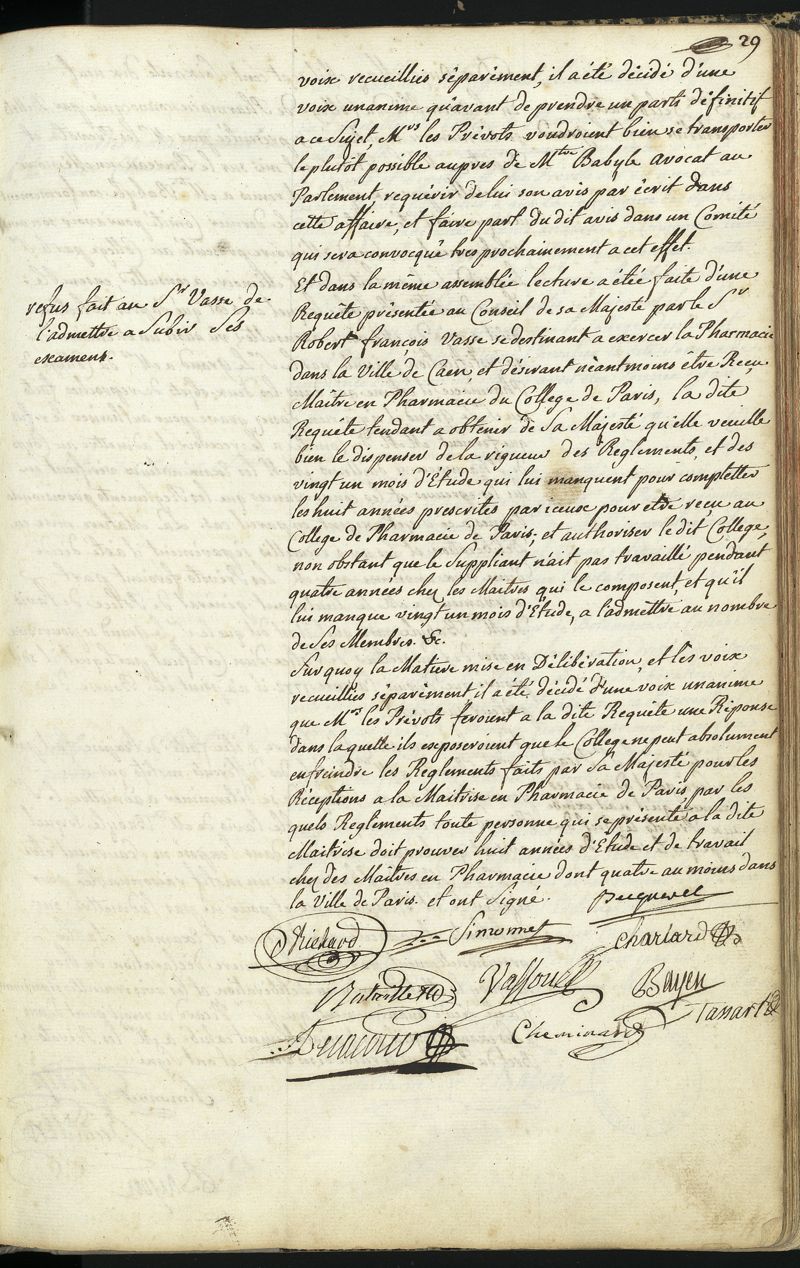 29
voix recueillies séparément, il a été décidé d'une
voix unanime qu'avant de prendre un parti définitif
a ce Sujet, Mrs les Prévots voudroient bien se transporter
le plutôt possible aupres de Mtre Babyle avocat au
Parlement, requérir de lui son avis par écrit dans
cette affaire, et faire part du dit avis dans un Comité
qui sera convocqué tres prochainement a cet effet.
Et dans la même assemblée lecture a étée faite d'une
refus fait au Sr Vasse de
l'admettre a Subir Ses
examens.
Requête présentée au Conseil de sa Majesté par le Sr
Robert françois Vasse se destinant a exercer la Pharmacie
dans la Ville de Caen, et désirant néantmoins être Reçu
Maître en Pharmacie du College de Paris, la dite
Requête tendant a obtenir de Sa Majesté qu'elle veuille
bien le dispenser de la rigueur des Reglements, et des
vingt un mois d'Étude qui lui manquent pour completter
les huit années prescrites par iceux pour etre reçu au
College de Pharmacie de Paris, et authoriser le dit College,
non obstant que le Suppliant n'ait pas travaillé pendant
quatre années chez les Maitres qui le composent, et qu'il
lui manque vingt un mois d'Etude, a l'admettre au nombre
de Ses Membres. &c.
Sur quoy la Matiere mise en Délibération, et les voix
recueillies séparément il a été décidé d'une voix unanime
que Mrs les Prévots feroient a la dite Requête une Réponse
dans laquelle ils exposeroient que le College ne peut absolument
enfreindre les Reglements faits par Sa Majesté pour les
Réceptions a la Maitrise en Pharmacie de Paris, par les
quels Reglements toute personne qui se présente a la dite
Maitrise doit prouver huit années d'Etude et de travail
chez des Maîtres en Pharmacie dont quatre au moins dans
la Ville de Paris. et ont Signé.
Becquerel
Richard
Simonnet
Charlard
Bataille
Vassou
Bayen
Tassart
Cheminard